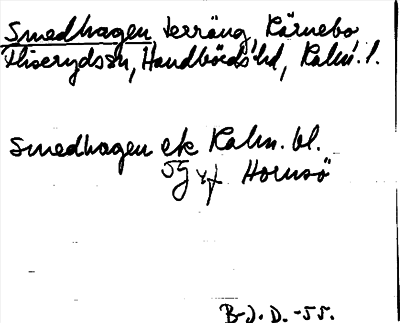 Smedhagen terräng, Kärnebo
Fliserydssn, Handbördshd, Kalm. l.
Smedhagen ek Kalm. bl.
5g xf Hornsö
B-J. D. -55.